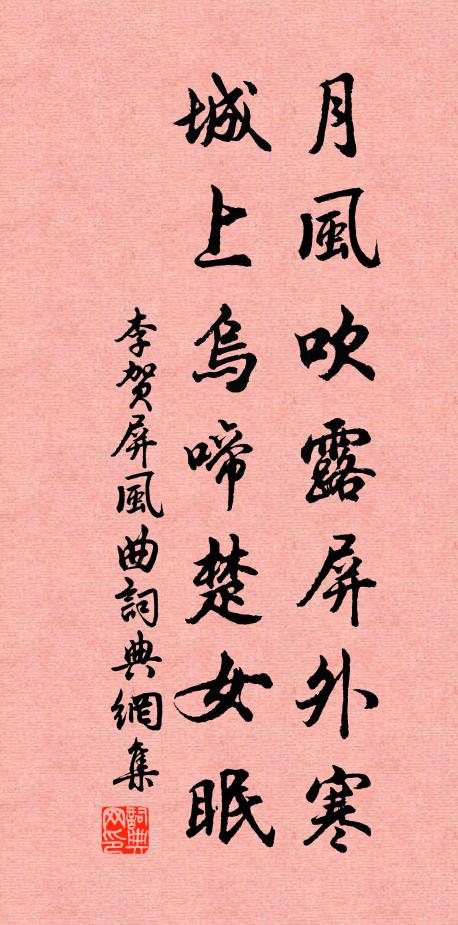 月風吹露屏外寒
城上烏啼楚女眠
李賀屏風曲詞典網集
詞典网印